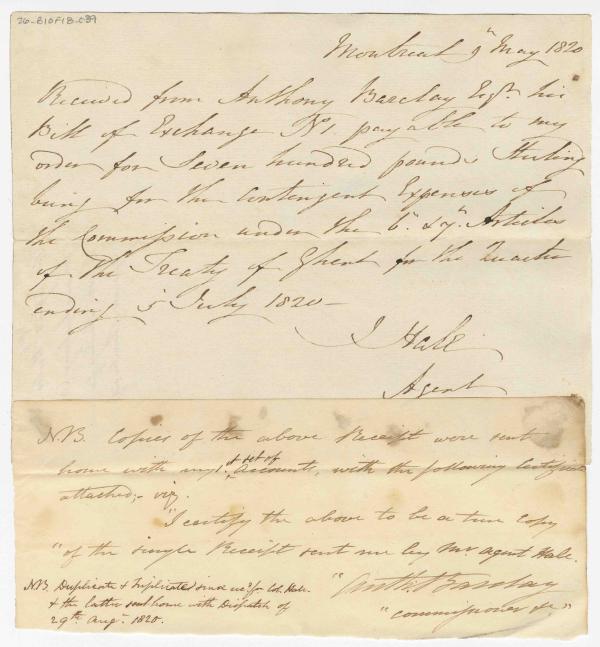 26-B10F1B-039
Montreal 9th May 1820
Received from Anthony Barclay Esqr. his
Bill of Exchange No 1. payable to my
order for Seven hundred pounds Sterling
being for the Contingent Expenses of
the Commission under the 6th & 7th Articles
of the Treaty of Ghent for the Quarter
ending 5 July 1820—
J Hale
Agent
N.B. Copies of the above Receipt were sent
home with my 1st set of Accounts, with the following Certificate
attached;- viz.
"I certify the above to be a true Copy
"of the single Receipt sent me by Mr. Agent Hale.
"Anth: Barclay
"Commissioner &c."
N.B. Duplicate & Triplicate since recd. fr Col. Hale.
& the latter sent home with Dispatch of
29th Augt. 1820.